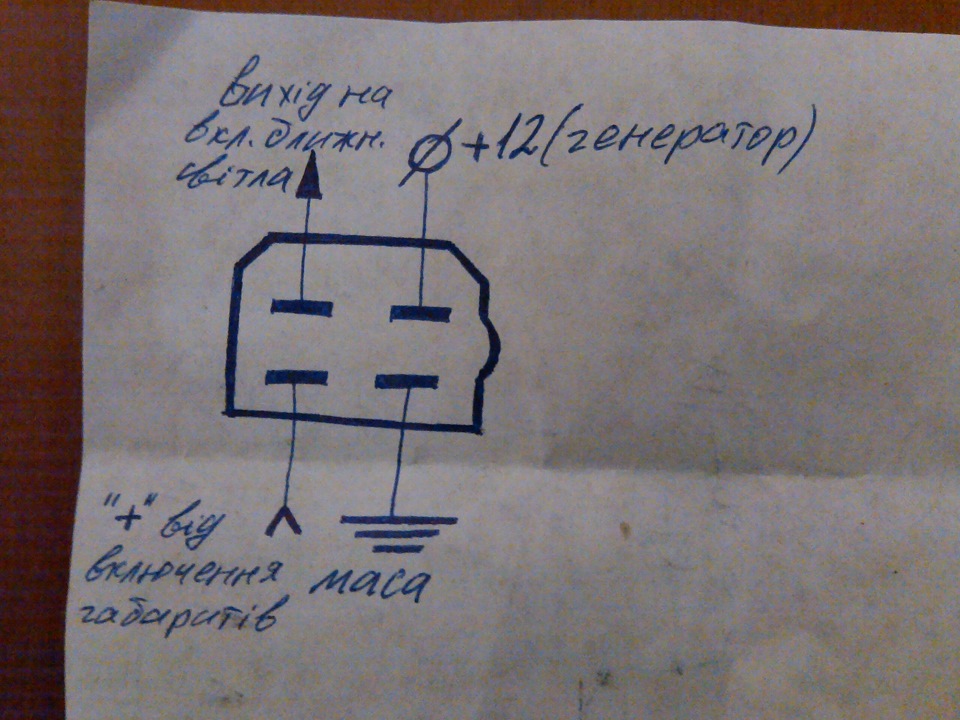 вихід на
вкл. ближн.
світла
+12 (генератор)
"+" від
включення
габаритів
маса